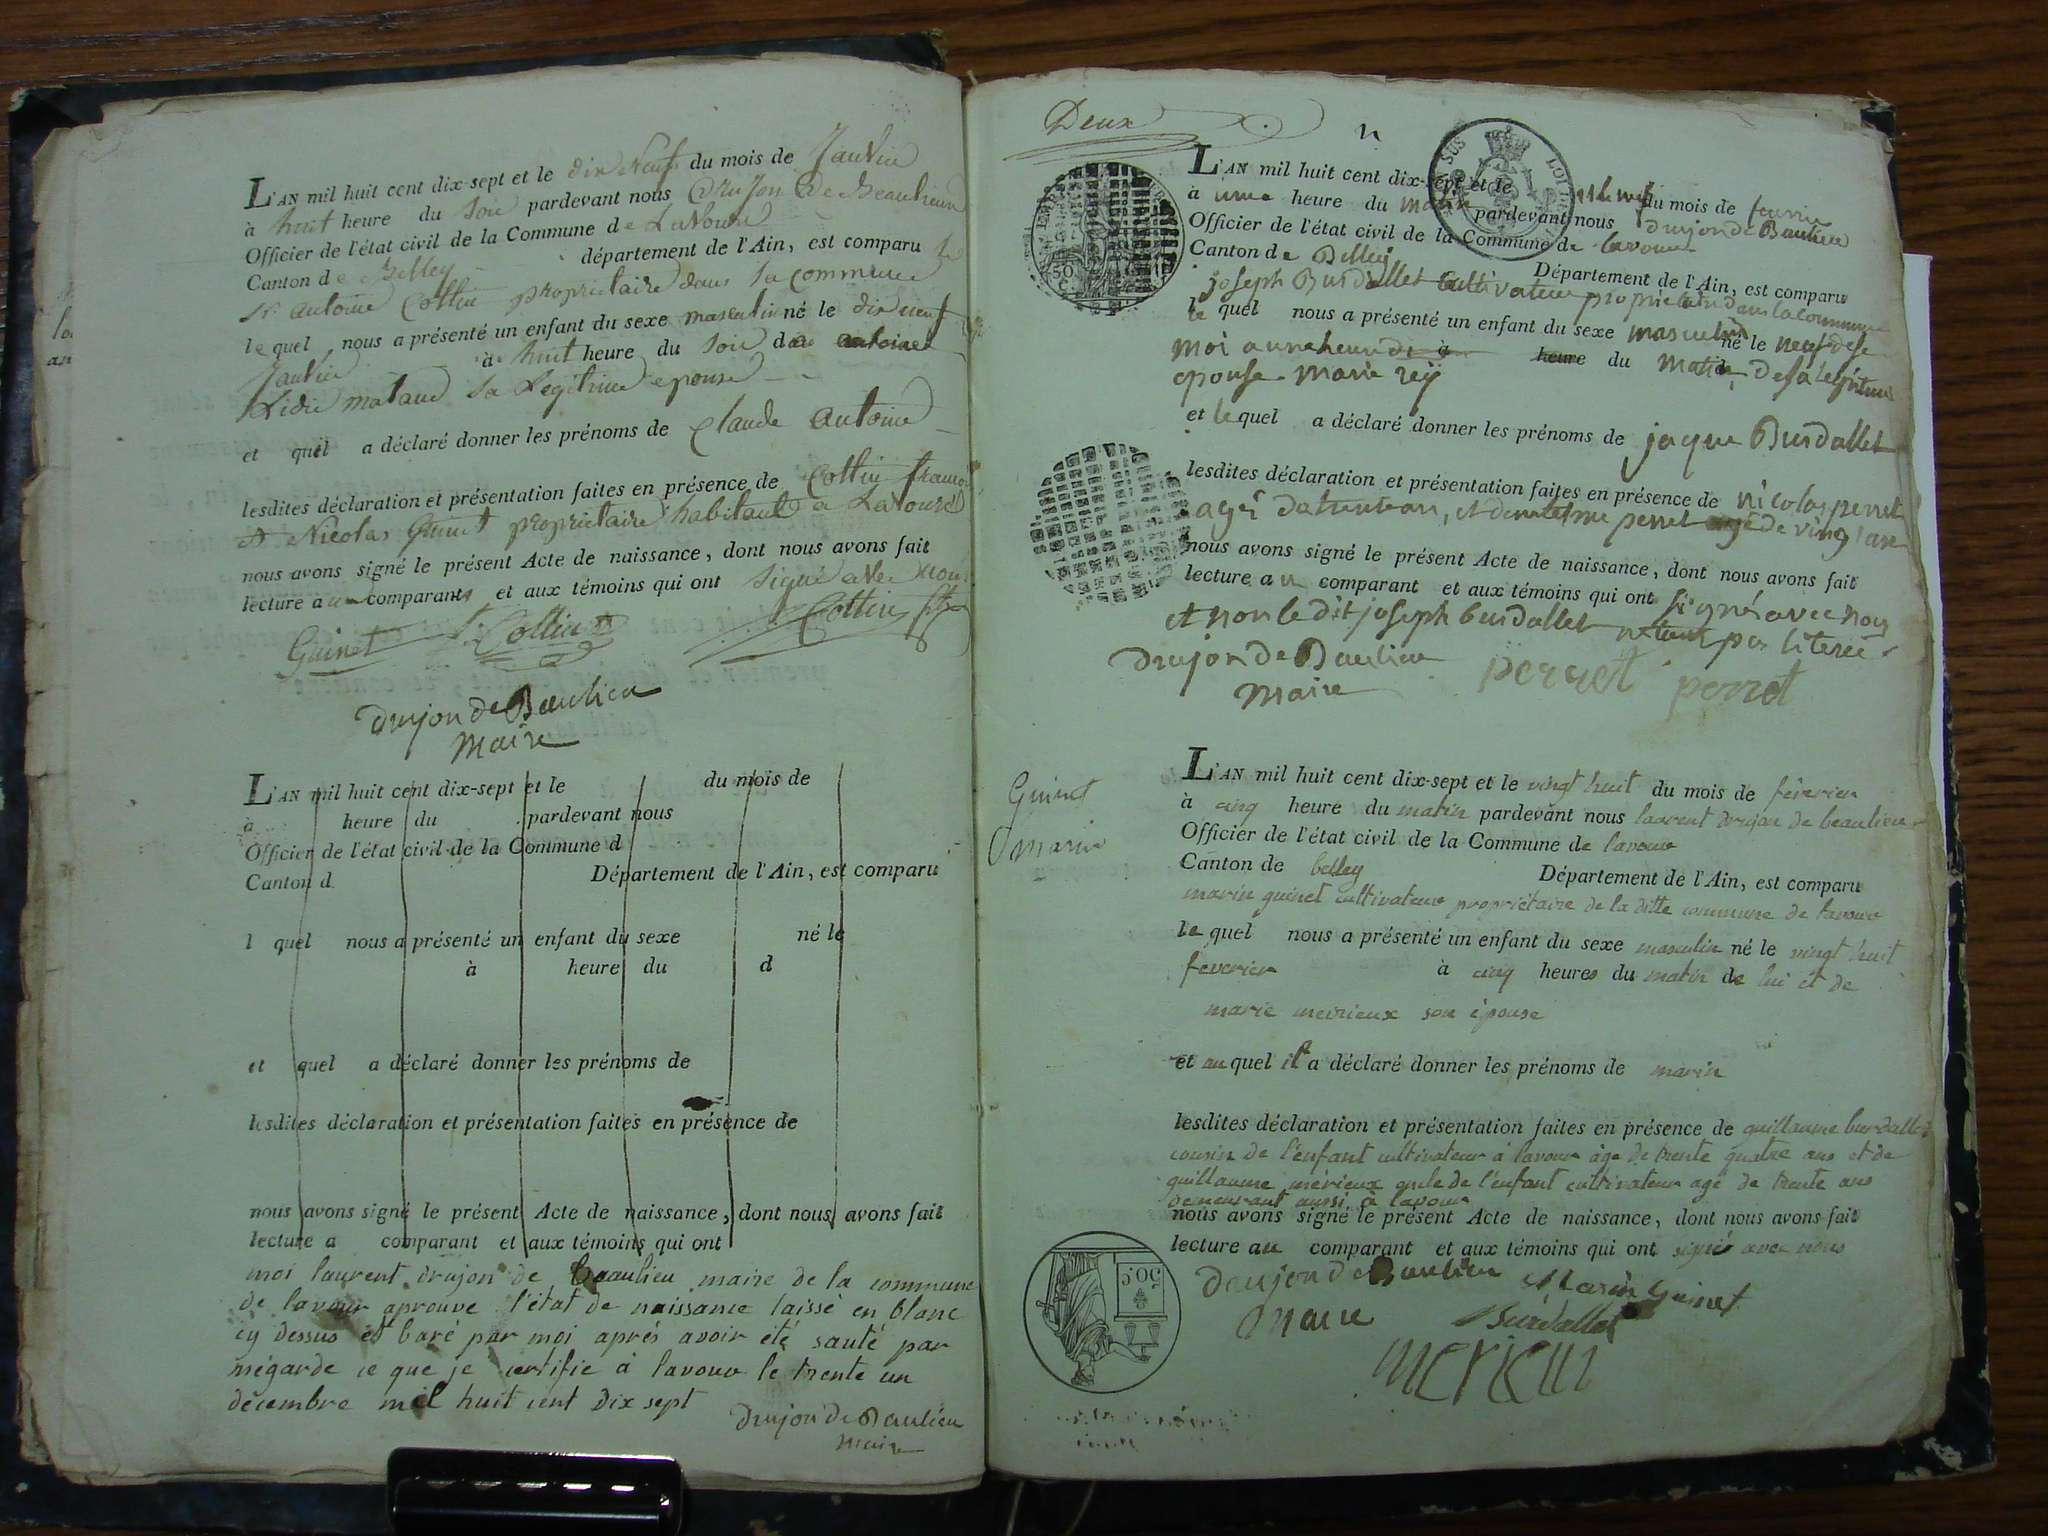 L'AN mil huit cent dix-sept et le dix Neuf du mois de Janvier
à huit heure du soir pardevant nous Drujon de Beaulieu
Officier de l'état civil de la Commune de Lavour
Canton de Belley département de l'Ain, est comparu le
Sr. antoine Cottin proprietaire dans la commune
lequel nous a présenté un enfant du sexe masculin né le dix neuf
Janvier à huit heure du soir antoine
Lidie sa Legitime epouse
et quil a déclaré donner les prénoms de Claude antoine
lesdites déclaration et présentation faites en présence de Cottin
et Nicolas Guinet proprietaire habitant a Lavour
nous avons signé le présent Acte de naissance, dont nous avons fait
lecture au comparant et aux témoins qui ont signé avec nous
Guinet Cottin Cottin
Drujon de Beaulieu
Maire
L'AN mil huit cent dix-sept et le du mois de
à heure du pardevant nous
Officier de l'état civil de la Commune d
Canton d Département de l'Ain, est comparu
l quel nous a présenté un enfant du sexe né le
à heure du d
et quel a déclaré donner les prénoms de
lesdites déclaration et présentation faites en présence de
nous avons signé le présent Acte de naissance, dont nous avons fait
lecture a comparant et aux témoins qui ont
moi laurent drujon de beaulieu maire de la commune
de lavour aprouve l'état de naissance laissé en blanc
cy dessus et baré par moi aprés avoir été sauté par
mégarde ce que je certifie à lavour le trente un
décembre mil huit cent dix sept
Drujon de Baulieu
maire
Deux
L'AN mil huit cent dix-sept et le du mois de fevrier
à une heure du matin pardevant nous drujon de Baulieu
Officier de l'état civil de la Commune de lavour
Canton de Belley Département de l'Ain, est comparu
joseph Burdallet cultivateur proprietaire dans la commune
le quel nous a présenté un enfant du sexe masculin né le neuf de ce
moi a une heure du à heure du matin de sa legitime
epouse marie rey
et le quel a déclaré donner les prénoms de jaque Burdallet
lesdites déclaration et présentation faites en présence de nicolas perret
agé perret agé de vingt
nous avons signé le présent Acte de naissance, dont nous avons fait
lecture au comparant et aux témoins qui ont signé avec nous
et non le dit joseph burdallet netant pas literée
Drujon de Baulieu perret perret
maire
Guinet
marin
L'AN mil huit cent dix-sept et le vingt huit du mois de féverier
à cinq heure du matin pardevant nous laurent drujon de beaulieu
Officier de l'état civil de la Commune de lavour
Canton de belley Département de l'Ain, est comparu
marin guinet cultivateur propriétaire de la ditte commune de lavour
le quel nous a présenté un enfant du sexe masculin né le vingt huit
feverier à cinq heures du matin de lui et de
marie meirieux son épouse
et au quel il a déclaré donner les prénoms de marin
lesdites déclaration et présentation faites en présence de guillaume burdallet
cousin de l'enfant cultivateur à lavour âge de trente quatre ans et de
guillaume mérieux oncle de l'enfant cultivateur agé de trente ans
demeurant aussi à lavour
nous avons signé le présent Acte de naissance, dont nous avons fait
lecture au comparant et aux témoins qui ont signés avec nous
Drujon de Baulieu Marin Guinet
Maire Burdallet
merieux
50 C.